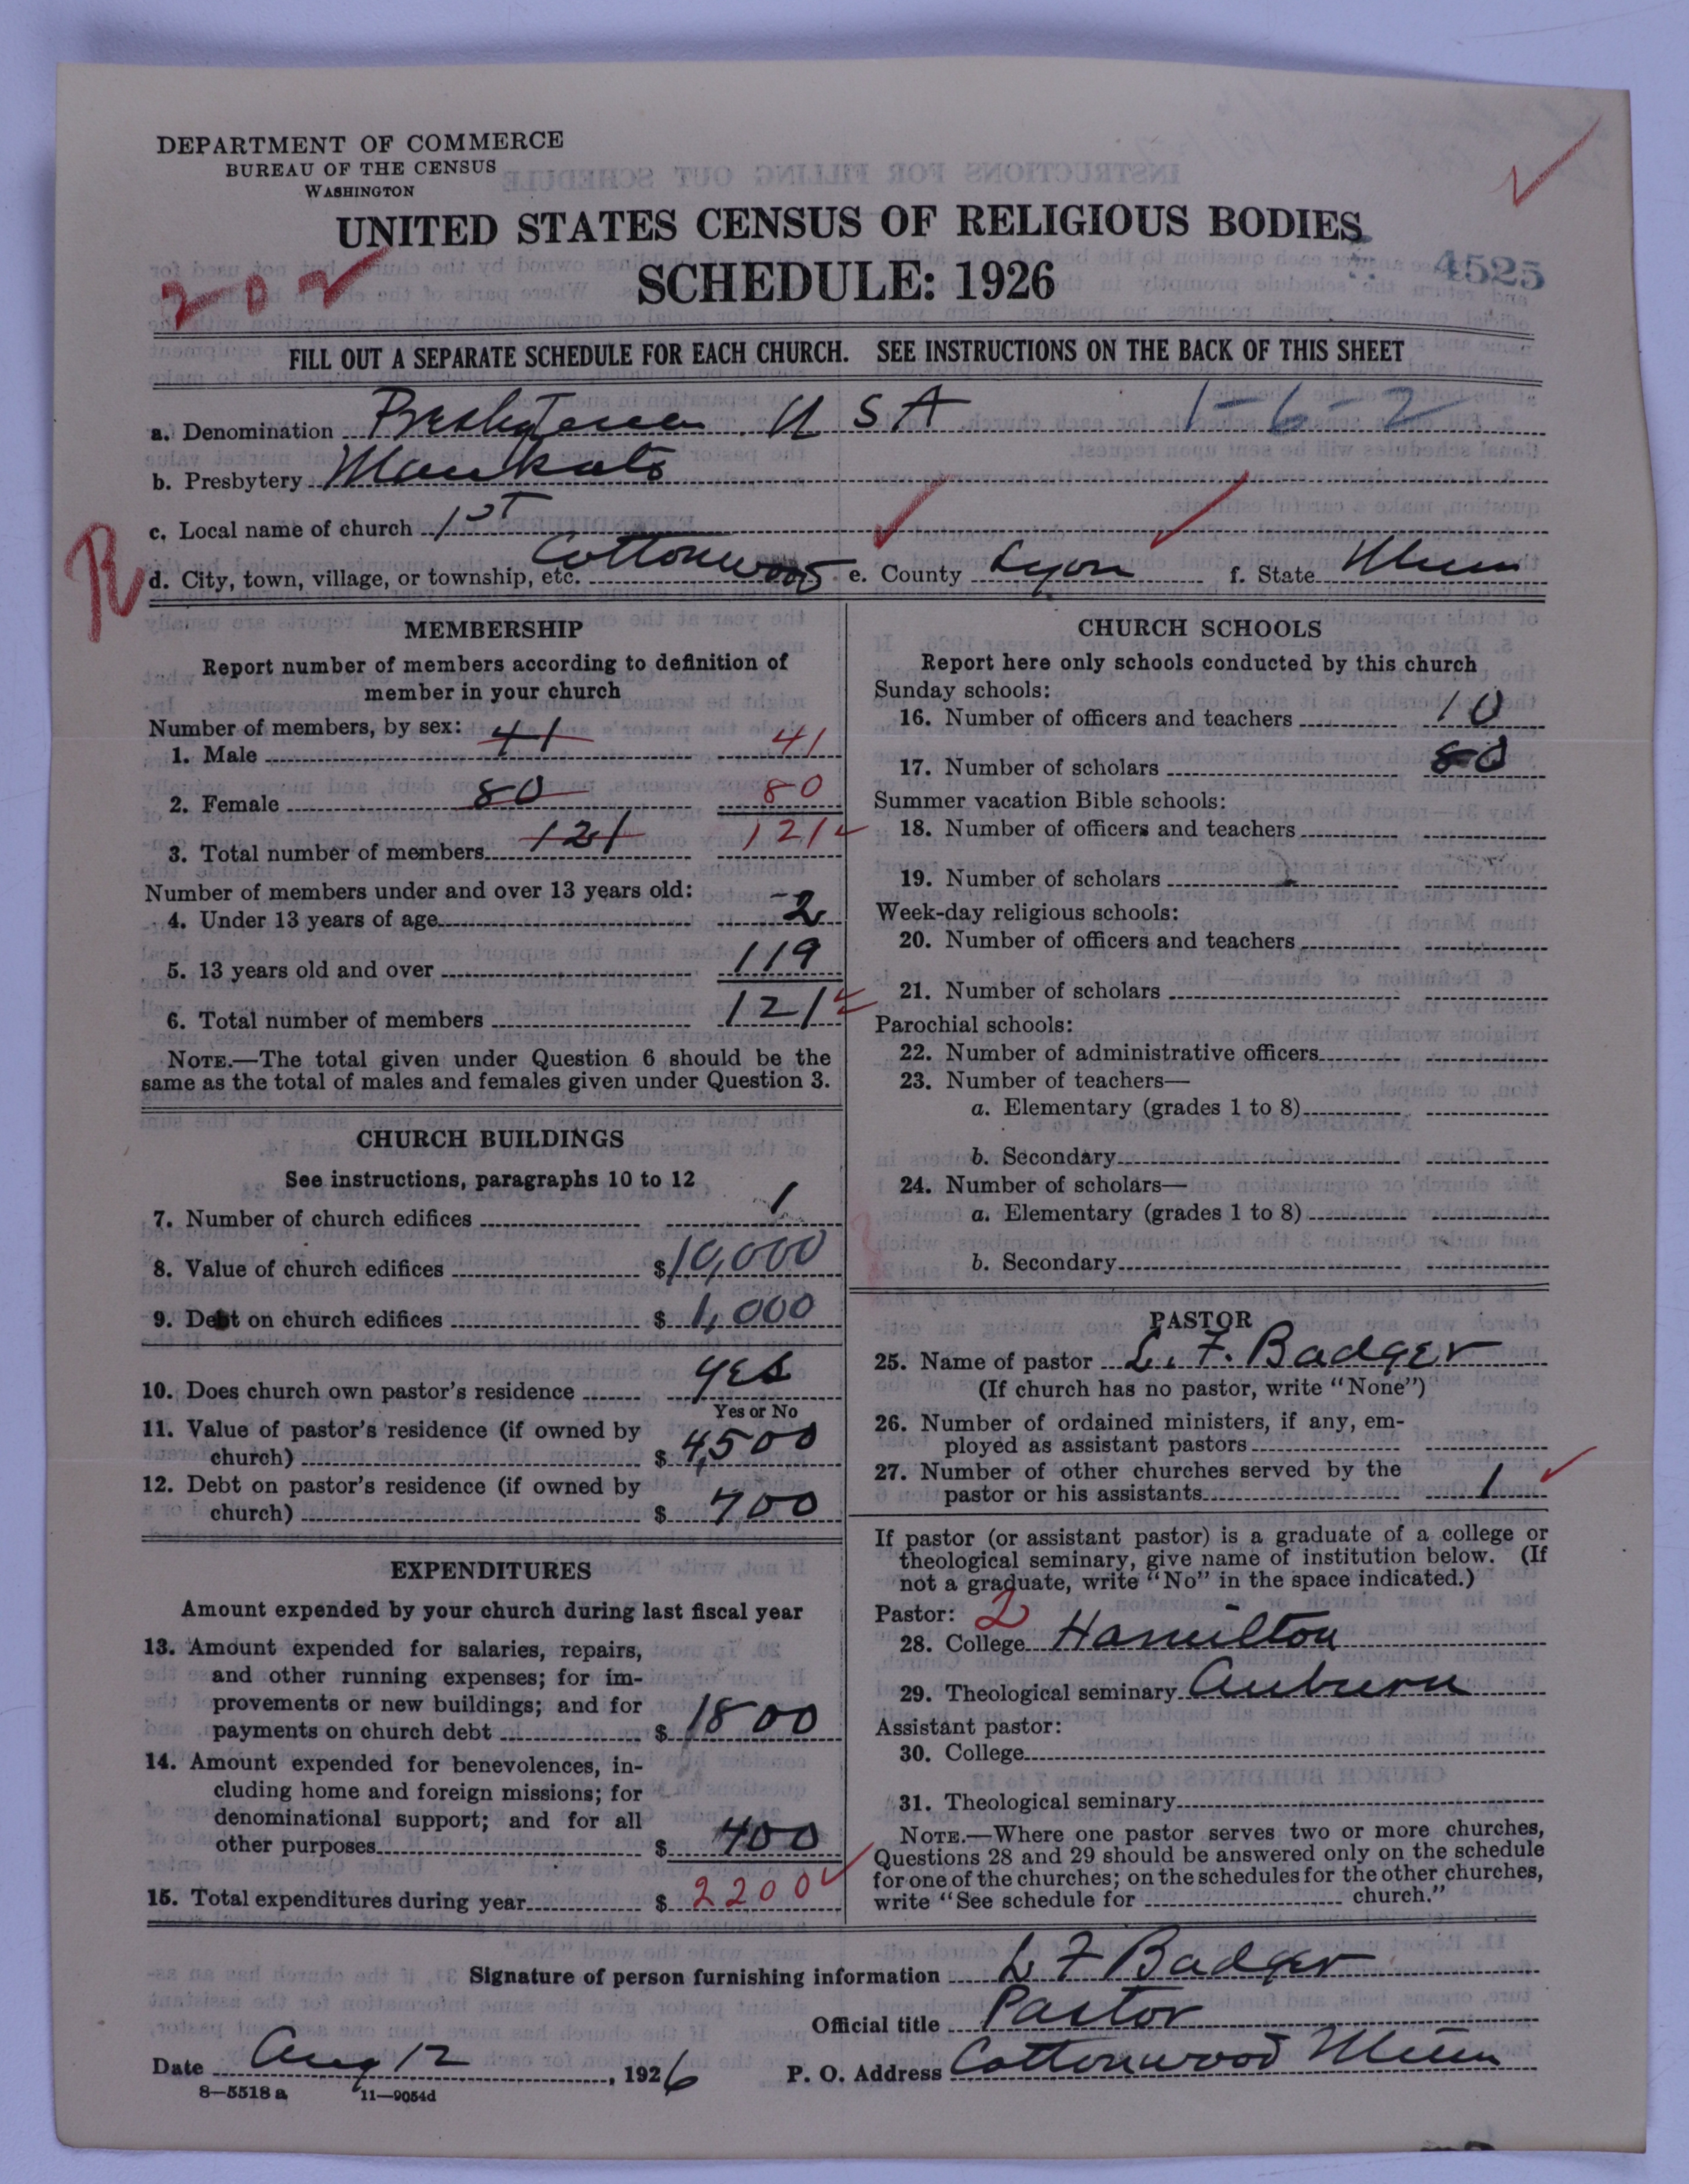 DEPARTMENT OF COMMERCE
BUREAU OF THE CENSUS
WASHINGTON
UNITED STATES CENSUS OF RELIGIOUS BODIES
SCHEDULE: 1926
4525
202
FILL OUT A SEPARATE SCHEDULE FOR EACH CHURCH. SEE INSTRUCTIONS ON THE BACK OF THIS SHEET
a. Denomination Presbyterian U S A 1-6-2
b. Presbytery Mankato
c. Local name of church 1st
R
d. City, town, village, or township, etc. Cottonwood e. County Lyon f. State Minn
MEMBERSHIP
Report number of members according to definition of
member in your church
Number of members, by sex:
1. Male 41 41
2. Female 80 80
3. Total number of members 121 121
Number of members under and over 13 years old:
4. Under 13 years of age -2
5. 13 years old and over 119
6. Total number of members 121
NOTE.—The total given under Question 6 should be the
same as the total of males and females given under Question 3.
CHURCH BUILDINGS
See instructions, paragraphs 10 to 12
7. Number of church edifices 1
8. Value of church edifices $10,000
9. Debt on church edifices $1,000
10. Does church own pastor's residence yes
Yes or No
11. Value of pastor's residence (if owned by
church) $4,500
12. Debt on pastor's residence (if owned by
church) $700
EXPENDITURES
Amount expended by your church during last fiscal year
13. Amount expended for salaries, repairs,
and other running expenses; for im-
provements or new buildings; and for
payments on church debt $1800
14. Amount expended for benevolences, in-
cluding home and foreign missions; for
denominational support; and for all
other purposes $400
15. Total expenditures during year $2200
CHURCH SCHOOLS
Report here only schools conducted by this church
Sunday schools:
16. Number of officers and teachers 10
17. Number of scholars 80
Summer vacation Bible schools:
18. Number of officers and teachers
19. Number of scholars
Week-day religious schools:
20. Number of officers and teachers
21. Number of scholars
Parochial schools:
22. Number of administrative officers
23. Number of teachers—
a. Elementary (grades 1 to 8)
b. Secondary
24. Number of scholars—
a. Elementary (grades 1 to 8)
b. Secondary
PASTOR
25. Name of pastor L. F. Badger
(If church has no pastor, write "None")
26. Number of ordained ministers, if any, em-
ployed as assistant pastors
27. Number of other churches served by the
pastor or his assistants 1
If pastor (or assistant pastor) is a graduate of a college or
theological seminary, give name of institution below. (If
not a graduate, write "No" in the space indicated.)
Pastor: 2
28. College Hamilton
29. Theological seminary Auburn
Assistant pastor:
30. College
31. Theological seminary
NOTE.—Where one pastor serves two or more churches,
Questions 28 and 29 should be answered only on the schedule
for one of the churches; on the schedules for the other churches,
write "See schedule for church."
Signature of person furnishing information L F Badger
Official title Pastor
Date Aug 12, 1926 P. O. Address Cottonwood Minn
8—5518a 11—9054d